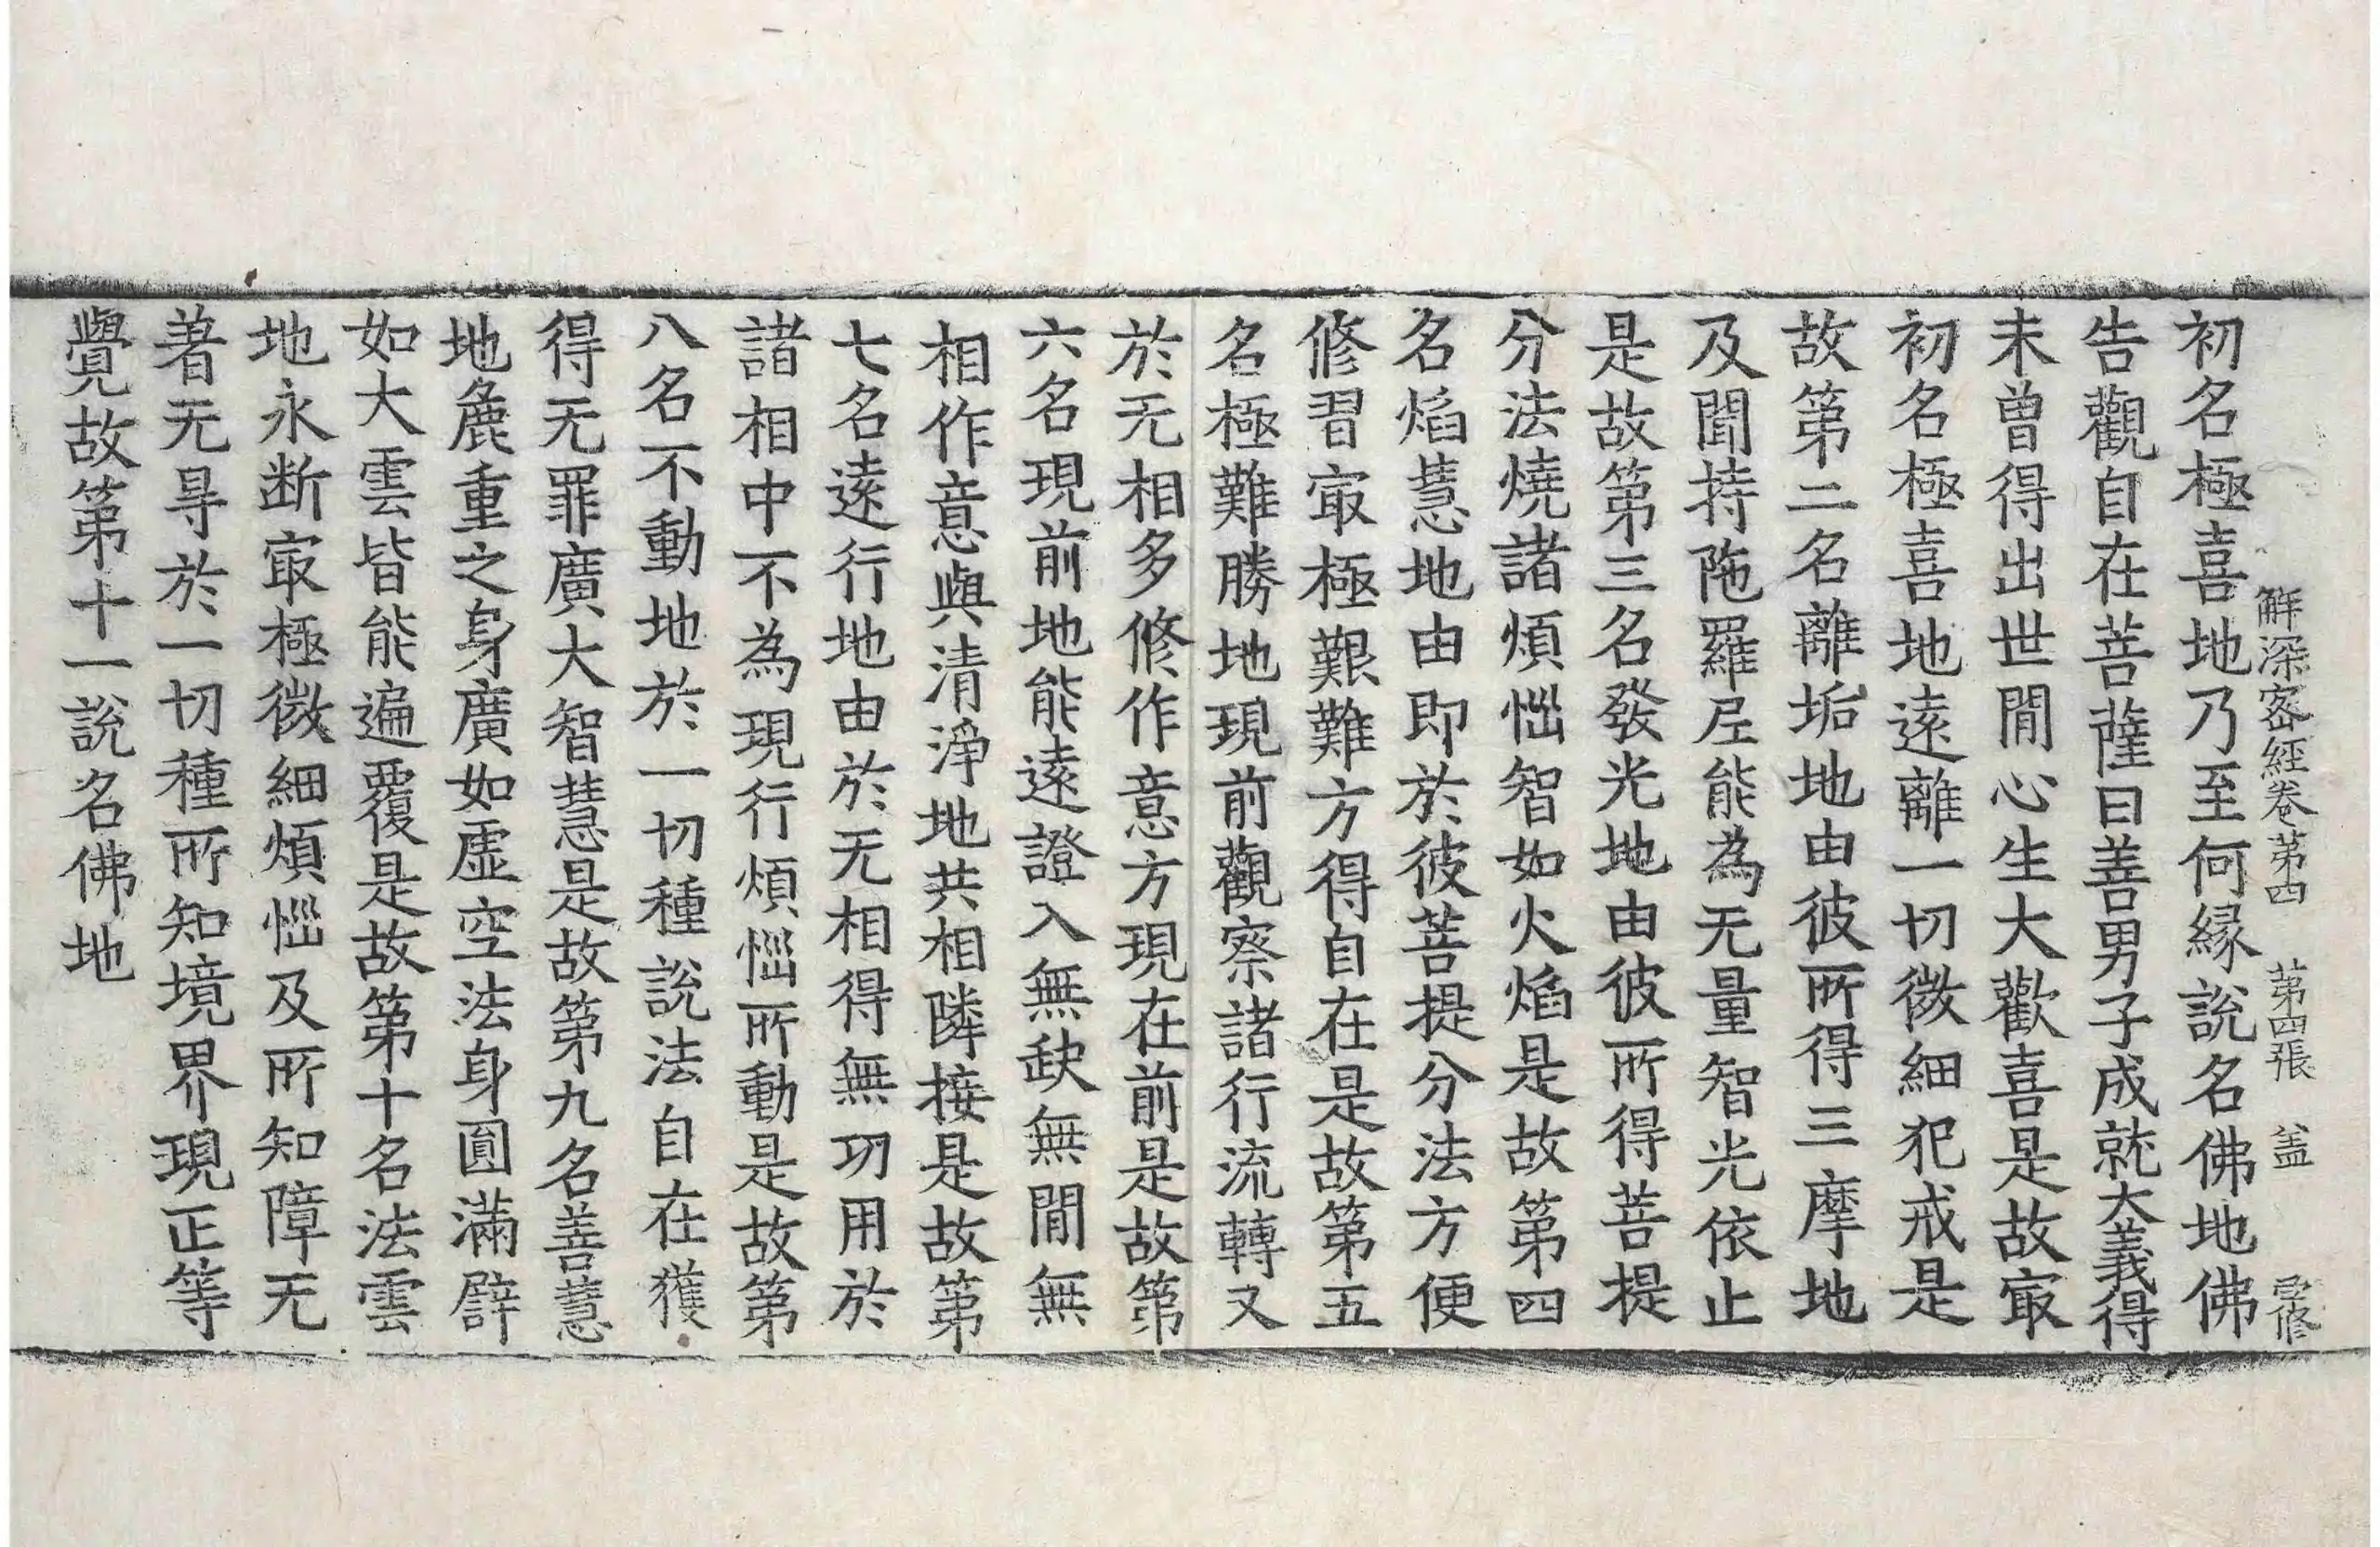 解深密經卷第四 第四張 盖
初名極喜地乃至何縁說名佛地佛
告觀自在菩薩曰善男子成就大義得
未曾得出世閒心生大歡喜是故㝡
初名極喜地逺離一切微細犯戒是
故第二名離垢地由彼所得三摩地
及聞持陁羅尼能為无量智光依止
是故第三名發光地由彼所得菩提
分法燒諸煩惱智如火焰是故第四
名焰慧地由即於彼菩提分法方便
修習㝡極艱難方得自在是故第五
名極難勝地現前觀察諸行流轉又
於无相多修作意方現在前是故第
六名現前地能逺證入無缺無閒無
相作意與清淨地共相隣接是故第
七名逺行地由於无相得無功用於
諸相中不為現行煩惱所動是故第
八名不動地於一切種說法自在獲
得无罪廣大智慧是故第九名善慧
地麁重之身廣如虛空法身圓滿譬
如大雲皆能遍覆是故第十名法雲
地永断㝡極微細煩惱及所知障无
著无㝵於一切種所知境界現正等
覺故第十一說名佛地